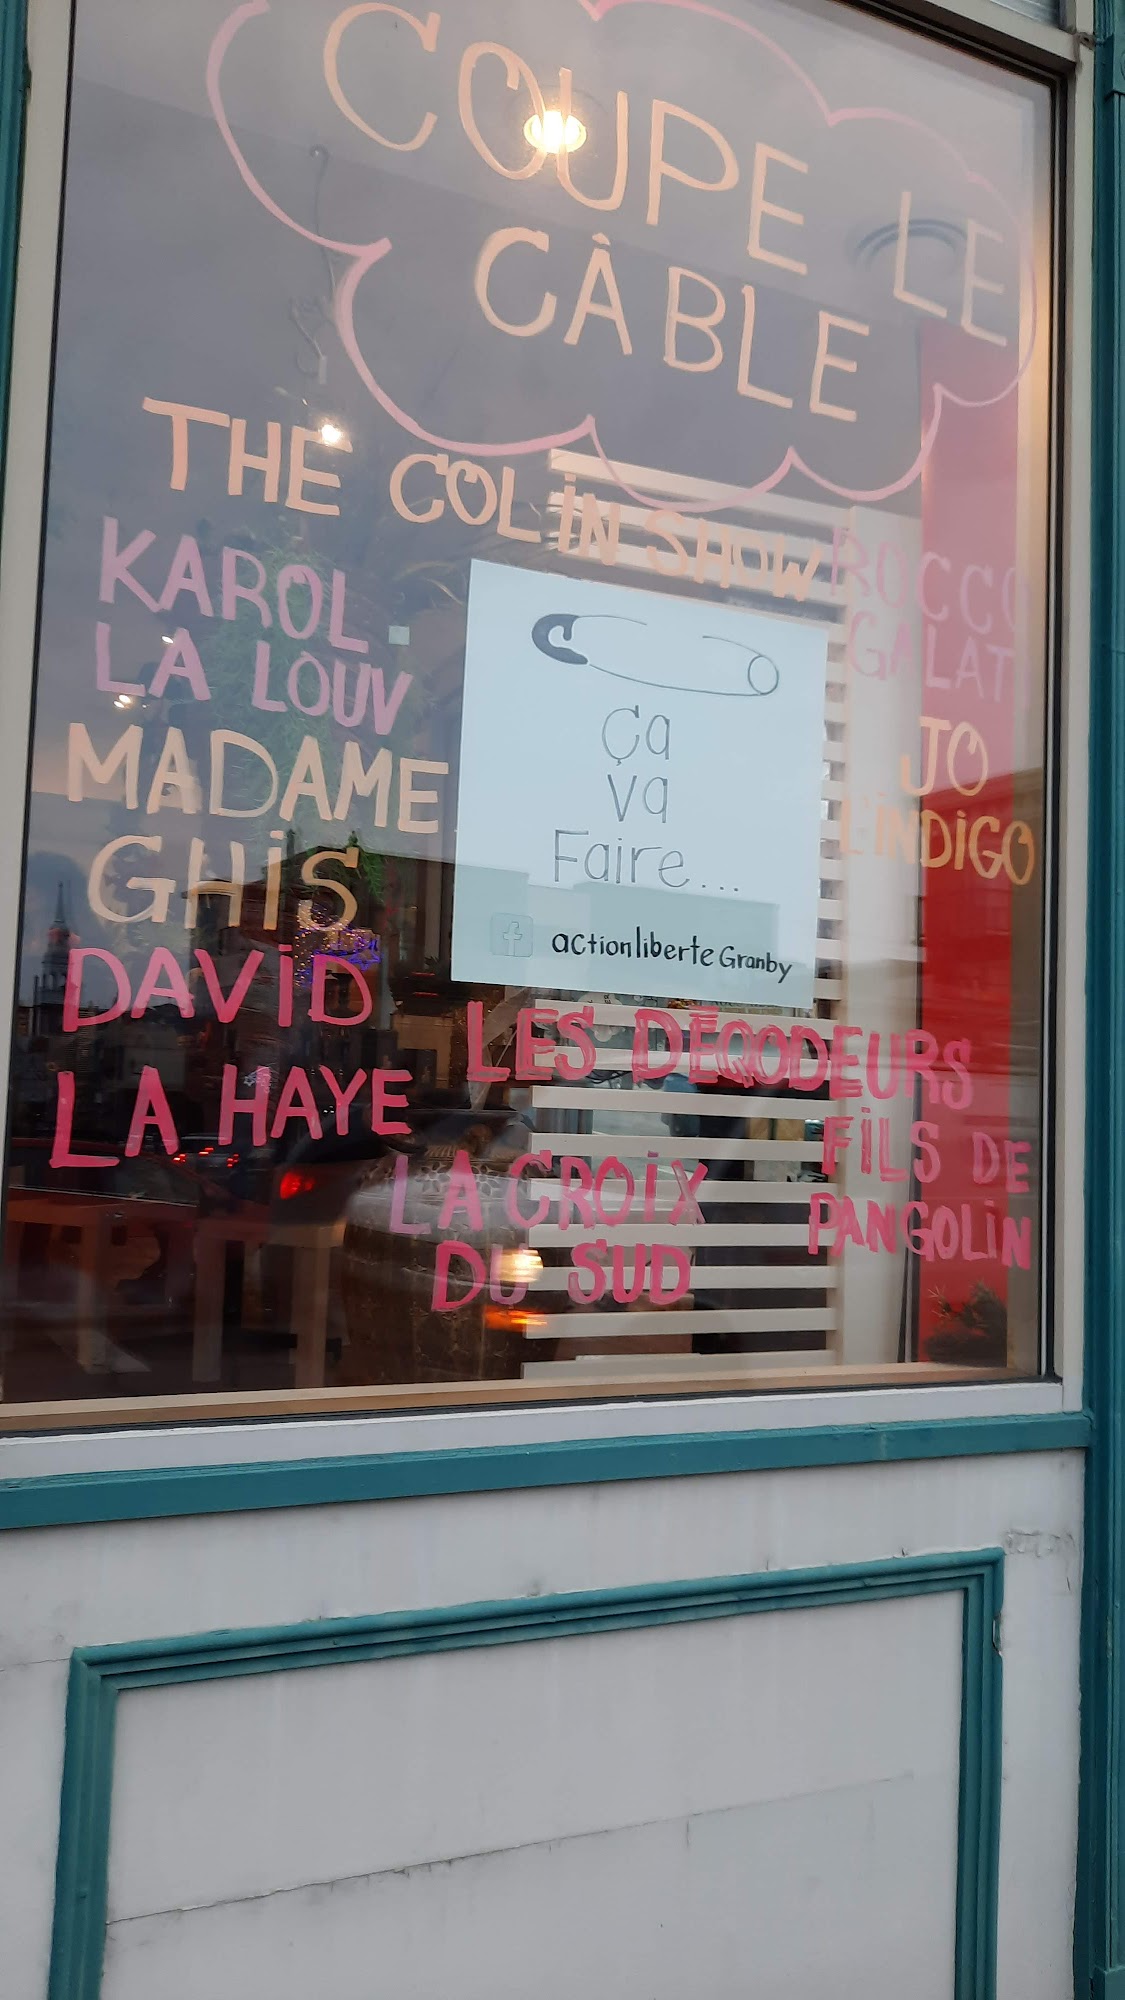 COUPE LE
CÀBLE
THE COLIN SHOW
KAROL
LA LOUV
MADAME
GHIS
DAVID
LA HAYE
ROCCO
GALATI
JO
L'INDIGO
Ça
va
Faire...
f actionliberte Granby
LES DÉQODEURS
FILS DE
PANGOLIN
LA CROIX
DU SUD